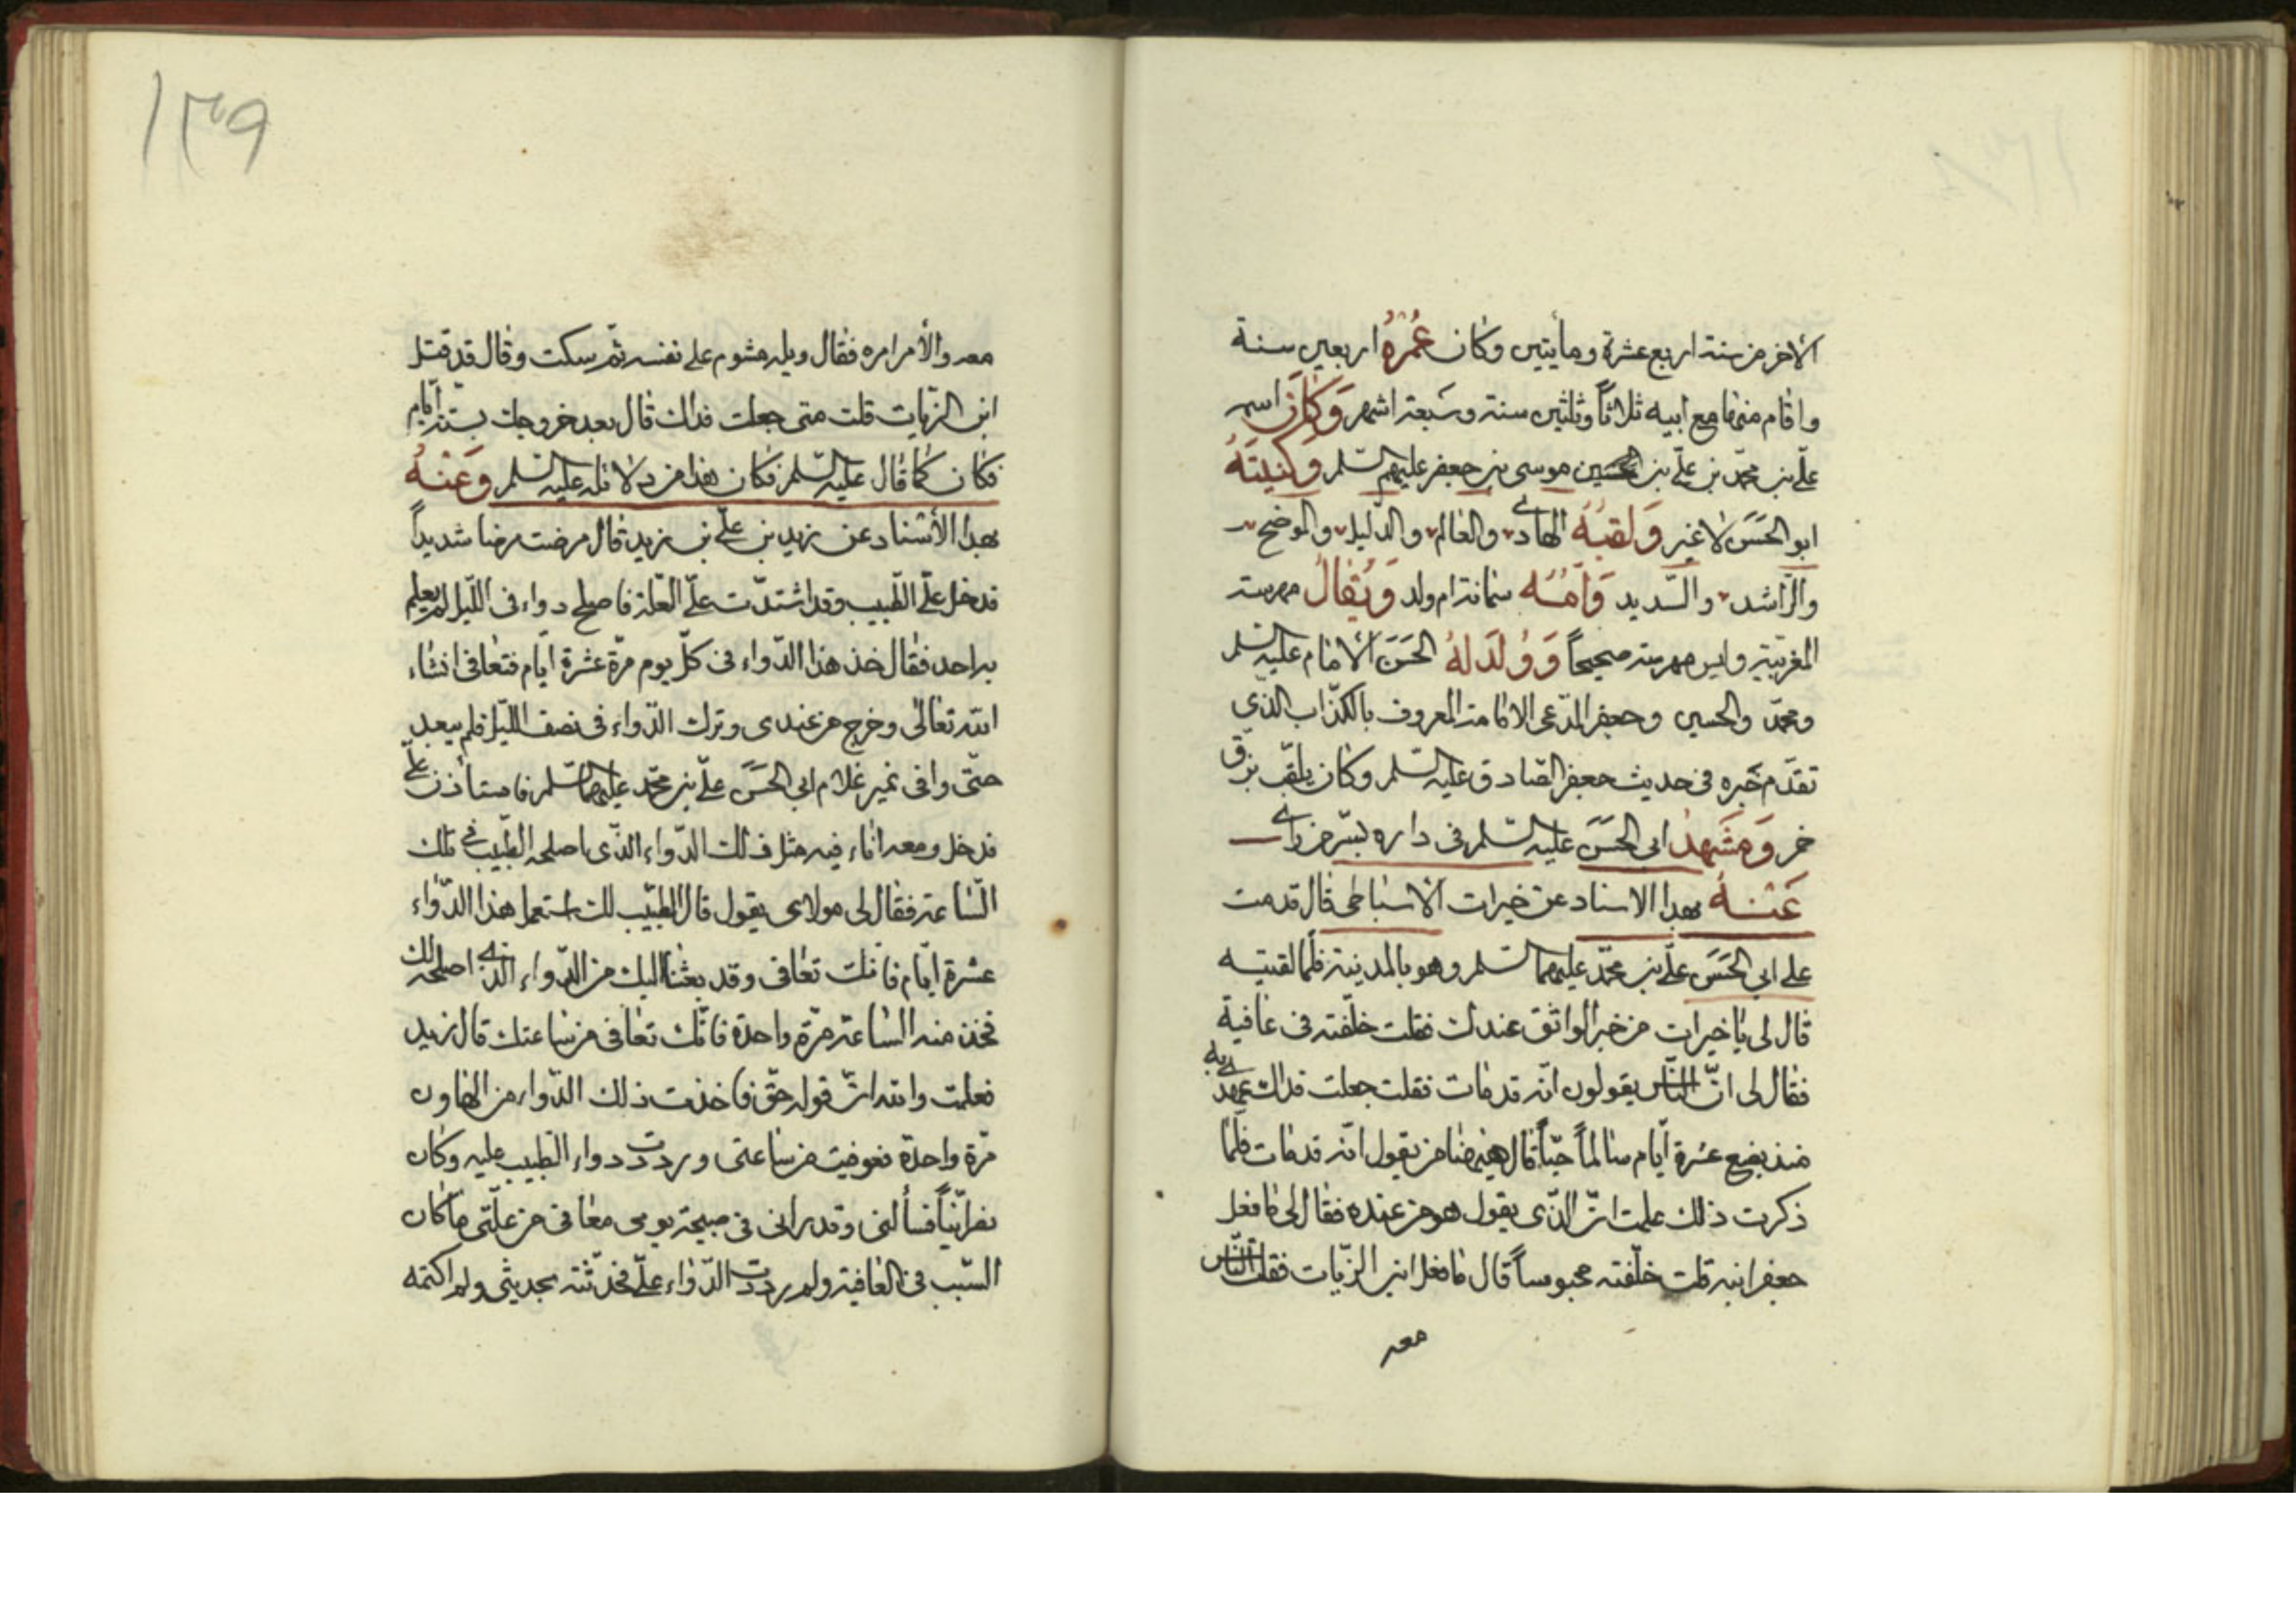 الآخر من سنة اربع عشرة ومأيتين وكان عُمْرُهُ اربعين سنة
واقام منها مع ابيه ثلاثاً وثلثين سنة وسَبعة اشهر وَكَانَ اسمه
علّي بن محمّد بن علّي بن موسى بن جعفر عليهم السّلم وَكنيَتَهُ
ابو الحَسَن لا غير وَلقبَهُ الهادي والعالم والدّليل والموضح
والرّاشد والسّديد وَاُمُّه سمانة ام ولد وَيُقالُ مهرسته
المغربيّة وليس مهرسته صحيحاً وَوُلدَ لهُ الحَسَن الامام عليه السّلم
ومحمّد والحسين وجعفر المدّعى الامامة المعروف بالكذّاب الذّي
تقدّم خَبره فى حديث جعفر الصّادق عليه السّلم وكان يلقّب بزقّ
خمر وَمَشَهدُ ابى الحَسَن عليه السّلم فى داره بسّر من رأى
عَنْهُ بهذا الاسناد عن خيرات الاسباطى قال قدمت
على ابي الحَسَن علّي بن محمّد عليهما السّلم وهو بالمدينة فلّما لقيته
قال لى يا خيرات من خبر الواثق عندك فقلت خلّفته فى عافية
فقال لى انّ النّاس يقولون انّه قد مات فقلت جعلت فداك عهدي به
منذ بضع عشرة ايّام سالماً حيّاً قال هيهنا من يقول انّه قد مات فلّما
ذكرت ذلك علمت انّ الذّى يقول هو من عنده فقال لى ما فعل
جعفر ابنه قلت خلّفته محبوساً قال ما فعل ابن الزّيات فقلت النّاس
معه
١٣٩
معه والأمر امره فقال ويله مشوم على نفسه ثمّ سكت وقال قد قتل
ابن الزّيات قلت متى جعلت فداك قال بعد خروجك بستّة ايّام
فكان كما قال عليه السّلم فكان هذا من دلائله عليه السّلم وَعَنْهُ
بهذا الأسناد عن زيد بن علّي بن زيد قال مرضت مرضا شديداً
فدخل علّي الطّبيب وقد اشتدّت علّي العلّة فاصلح دواء فى اللّيل لم يعلم
به احد فقال خذ هذا الدّواء فى كلّ يوم مرّة عشرة ايّام فتعافى انشاء
الله تعالى وخرج من عندى وترك الدّواء فى نصف اللّيل فلم يبعد
حتّى وافى نمير غلام ابى الحَسَن علّي بن محمّد عليهما السّلم فاستأذن علّي
فدخل ومعه اناء فيه مثل ذلك الدّواء الذّى اصلحه الطّبيب فى تلك
السّاعة فقال لى مولاى يقول قال الطّبيب لك استعمل هذا الدّواء
عشرة ايّام فانك تعافى وقد بعثنا اليك من الدّواء الذي اصلحه لك
فخذ منه السّاعة مرّة واحدة فانّك تعافى من ساعتك قال زيد
فعلمت والله انّ قوله حقّ فاخذت ذلك الدّواء من الهاون
مرّة واحدة فعوفيت من ساعتى ورددت دواء الطّبيب عليه وكان
نصرانيّاً فسألنى وقد رانى فى صبيحة يومى معافى من علّتى ما كان
السّبب فى العافية ولم رددت الدّواء علّي فحدّثته بحديثى ولم اكتمه